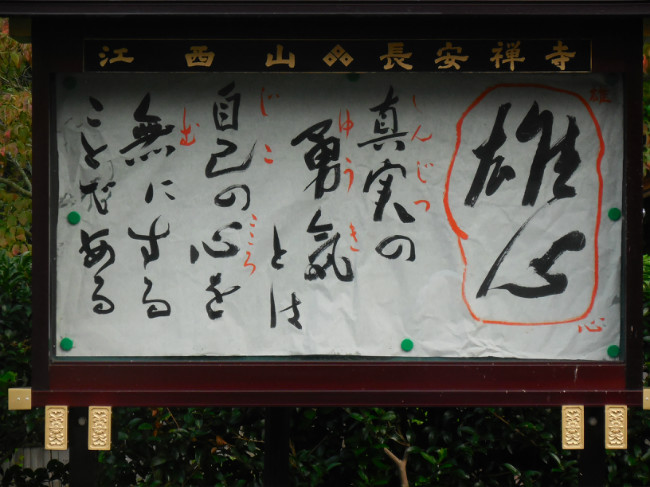 江西山 長安禅寺
雄心
雄
心
真実の
しんじつ
勇気とは
ゆうき
自己の心を
じこ
こころ
無にする
む
ことである